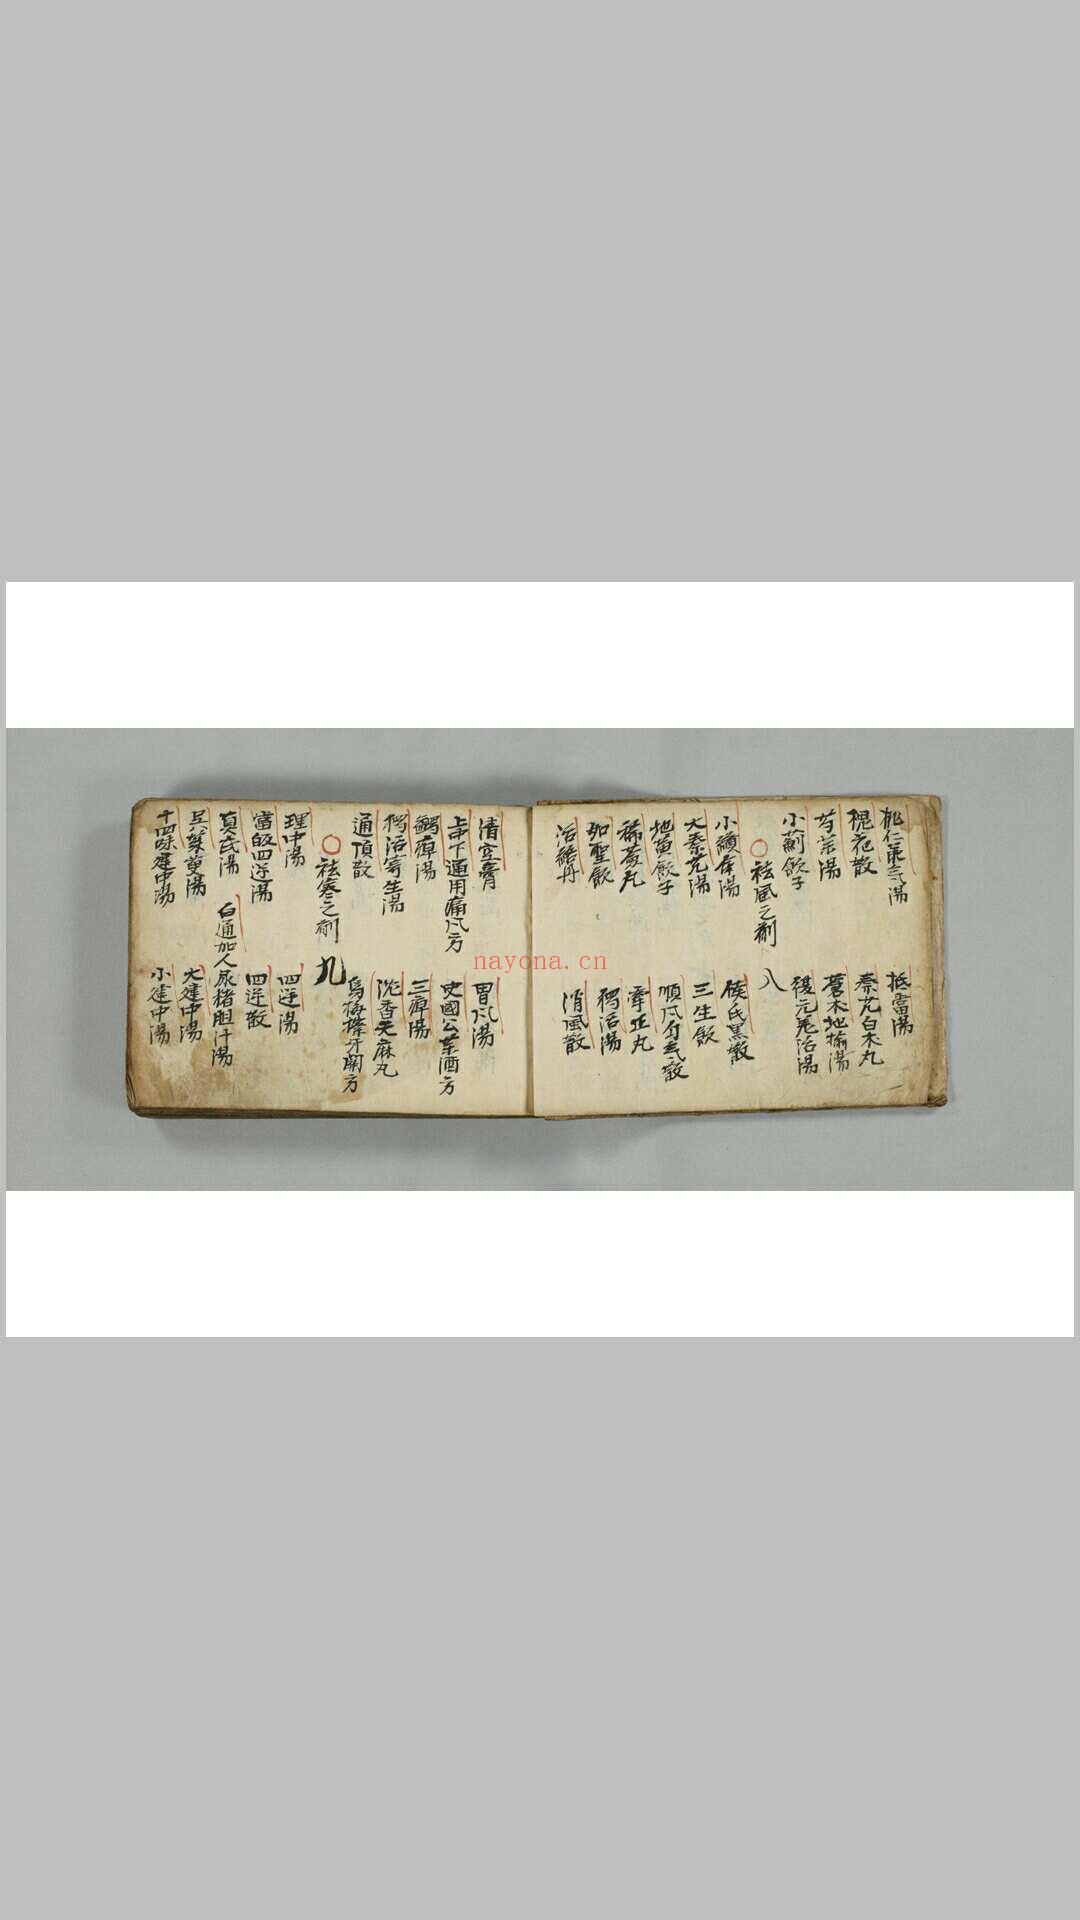 桃仁承气湯
抵當湯
槐花散
秦艽白术丸
芎芥湯
蒼术地榆湯
小薊飲子
復元羌活湯
○祛風之劑 八
小續命湯
侯氏黑散
大秦艽湯
三生飲
地黄飲子
順风勻气散
稀薟丸
牽正丸
如聖飲
獨活湯
活絡丹
消風散
清空膏
胃风湯
上中下通用痛风方
史國公藥酒方
蠲痺湯
三痺湯
獨活寄生湯
沉香天麻丸
通頂散
烏梅擦牙関方
○祛寒之劑 九
理中湯
四逆湯
當歸四逆湯
四逆散
真武湯
白通加人尿猪胆汁湯
吴茱萸湯
大建中湯
十四味建中湯
小建中湯
nayona.cn